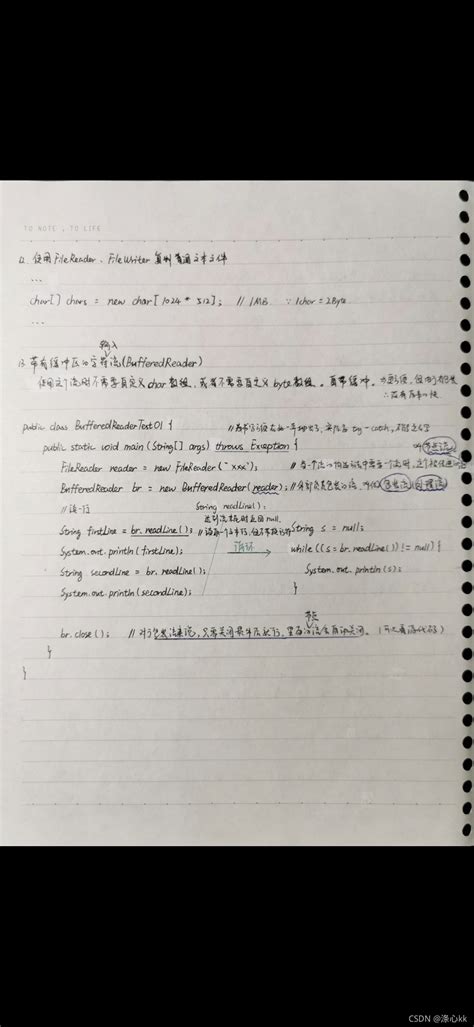 TO NOTE , TO LIFE
12. 使用FileReader、FileWriter复制普通文本文件
...
char[] chars = new char[1024 * 512]; // 1MB ∵ 1char = 2Byte
...
输入
13. 带有缓冲区的字符流(BufferedReader)
使用这个流时不需要自定义char数组，或者不需要自定义byte数组。自带缓冲。
public class BufferedReaderTest01 {
// 为节省 try-catch，
public static void main (String[] args) throws Exception {
节点流
FileReader reader = new FileReader("xxx"); // 当一个流的构造方法中需要一个流时，这个被传进
BufferedReader br = new BufferedReader(reader); // 外部负责包装的流，叫做 包装流/处理流
// 读一行 String readLine():
达到流末尾时返回null.
String firstLine = br.readLine(); // 读取一个文本行，但不带换行符 String s = null;
System.out.println(firstLine); 循环 while ((s = br.readLine()) != null) {
String secondLine = br.readLine(); System.out.println(s);
System.out.println(secondLine); }
节点
br.close(); // 对于包装流来说，只需关闭最外层就行，里面的流会自动关闭。（可以看源代码）
}
}
CSDN @涤心kk